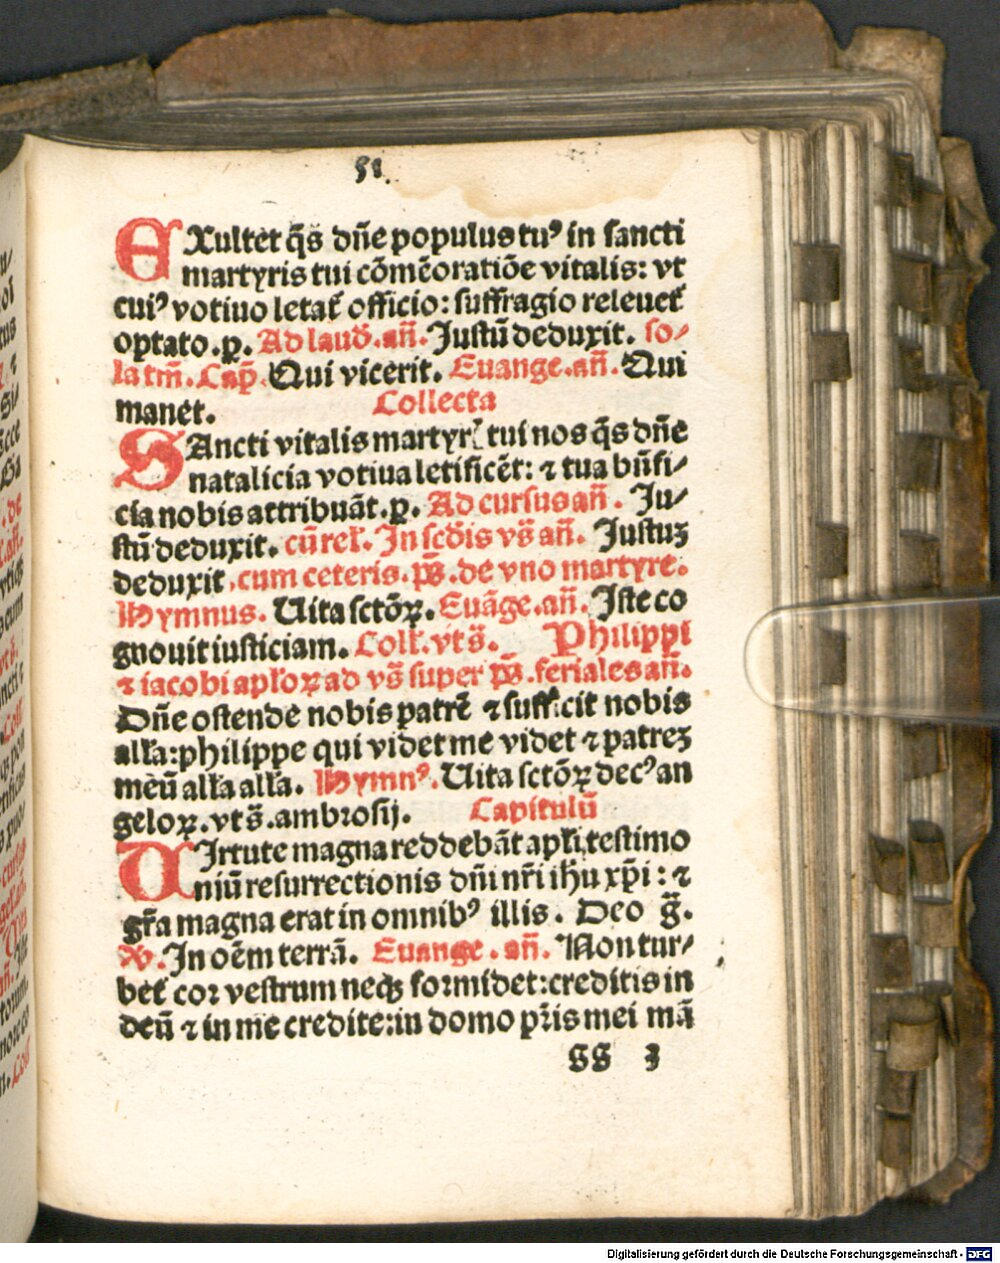 51.
EXultet q̄s dn̄e populus tuꝰ in sancti
martyris tui cōmēoratiōe vitalis: vt
cuiꝰ votiuo letat᷑ officio: suffragio releuet᷑
optato.ꝑ. Ad laud̛.an̄. Justū deduxit. so⸗
la tm̄. Cap̄. Qui vicerit. Euange.an̄. Qui
manet. Collecta
SAncti vitalis martyrꝭ tui nos q̄s dn̄e
natalicia votiua letificēt: ⁊ tua bn̄fi⸗
cia nobis attribuāt.ꝑ. Ad cursus an̄. Ju⸗
stū deduxit. cū rel̄. In scd̄is vs̄ an̄. Justuꝫ
deduxit, cum ceteris. ps̄. de vno martyre.
Hymnus. Uita sctōꝝ. Euāge.an̄. Iste co
gnouit iusticiam. Coll̄.vt s̄. Philippi
⁊ iacobi apl̄oꝝ ad vs̄ super ps̄.feriales an̄.
Dn̄e ostende nobis patrē ⁊ sufficit nobis
all̄a:philippe qui videt me videt ⁊ patreꝫ
meū all̄a all̄a. Hymnꝰ. Uita sctōꝝ decꝰ an
geloꝝ.vt s̄.ambrosij. Capitulū
UIrtute magna reddebāt apl̄i testimo
niū resurrectionis dn̄i nr̄i ih̄u xp̄i: ⁊
gr̄a magna erat in omnibꝰ illis. Deo g̅.
V. In oēm terrā. Euange.an̄. Non tur⸗
bet᷑ cor vestrum neqꝫ formidet:creditis in
deū ⁊ in me credite:in domo pr̄is mei mā
SS 3
Digitalisierung gefördert durch die Deutsche Forschungsgemeinschaft - DFG